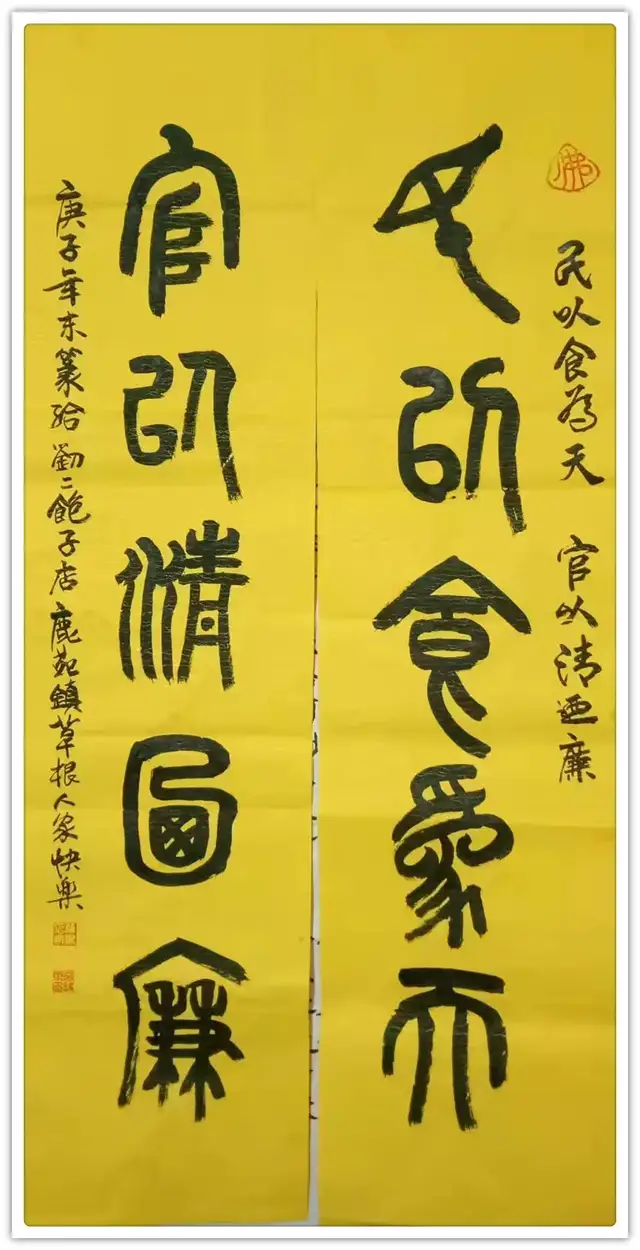 佛
民以食為天 官以清迺廉
民以食為天
官以清圖廉
庚子年末篆给劉二飽子店鹿苑鎮草根人家快樂